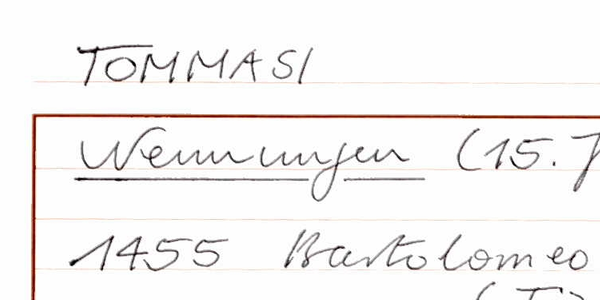 TOMMASI
Nennungen (15.J
1455 Bartolomeo